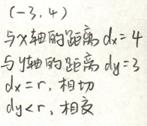 (-3,4)
与x轴的距离 dx=4
与y轴的距离 dy=3
dx=r,相切
dy<r,相交